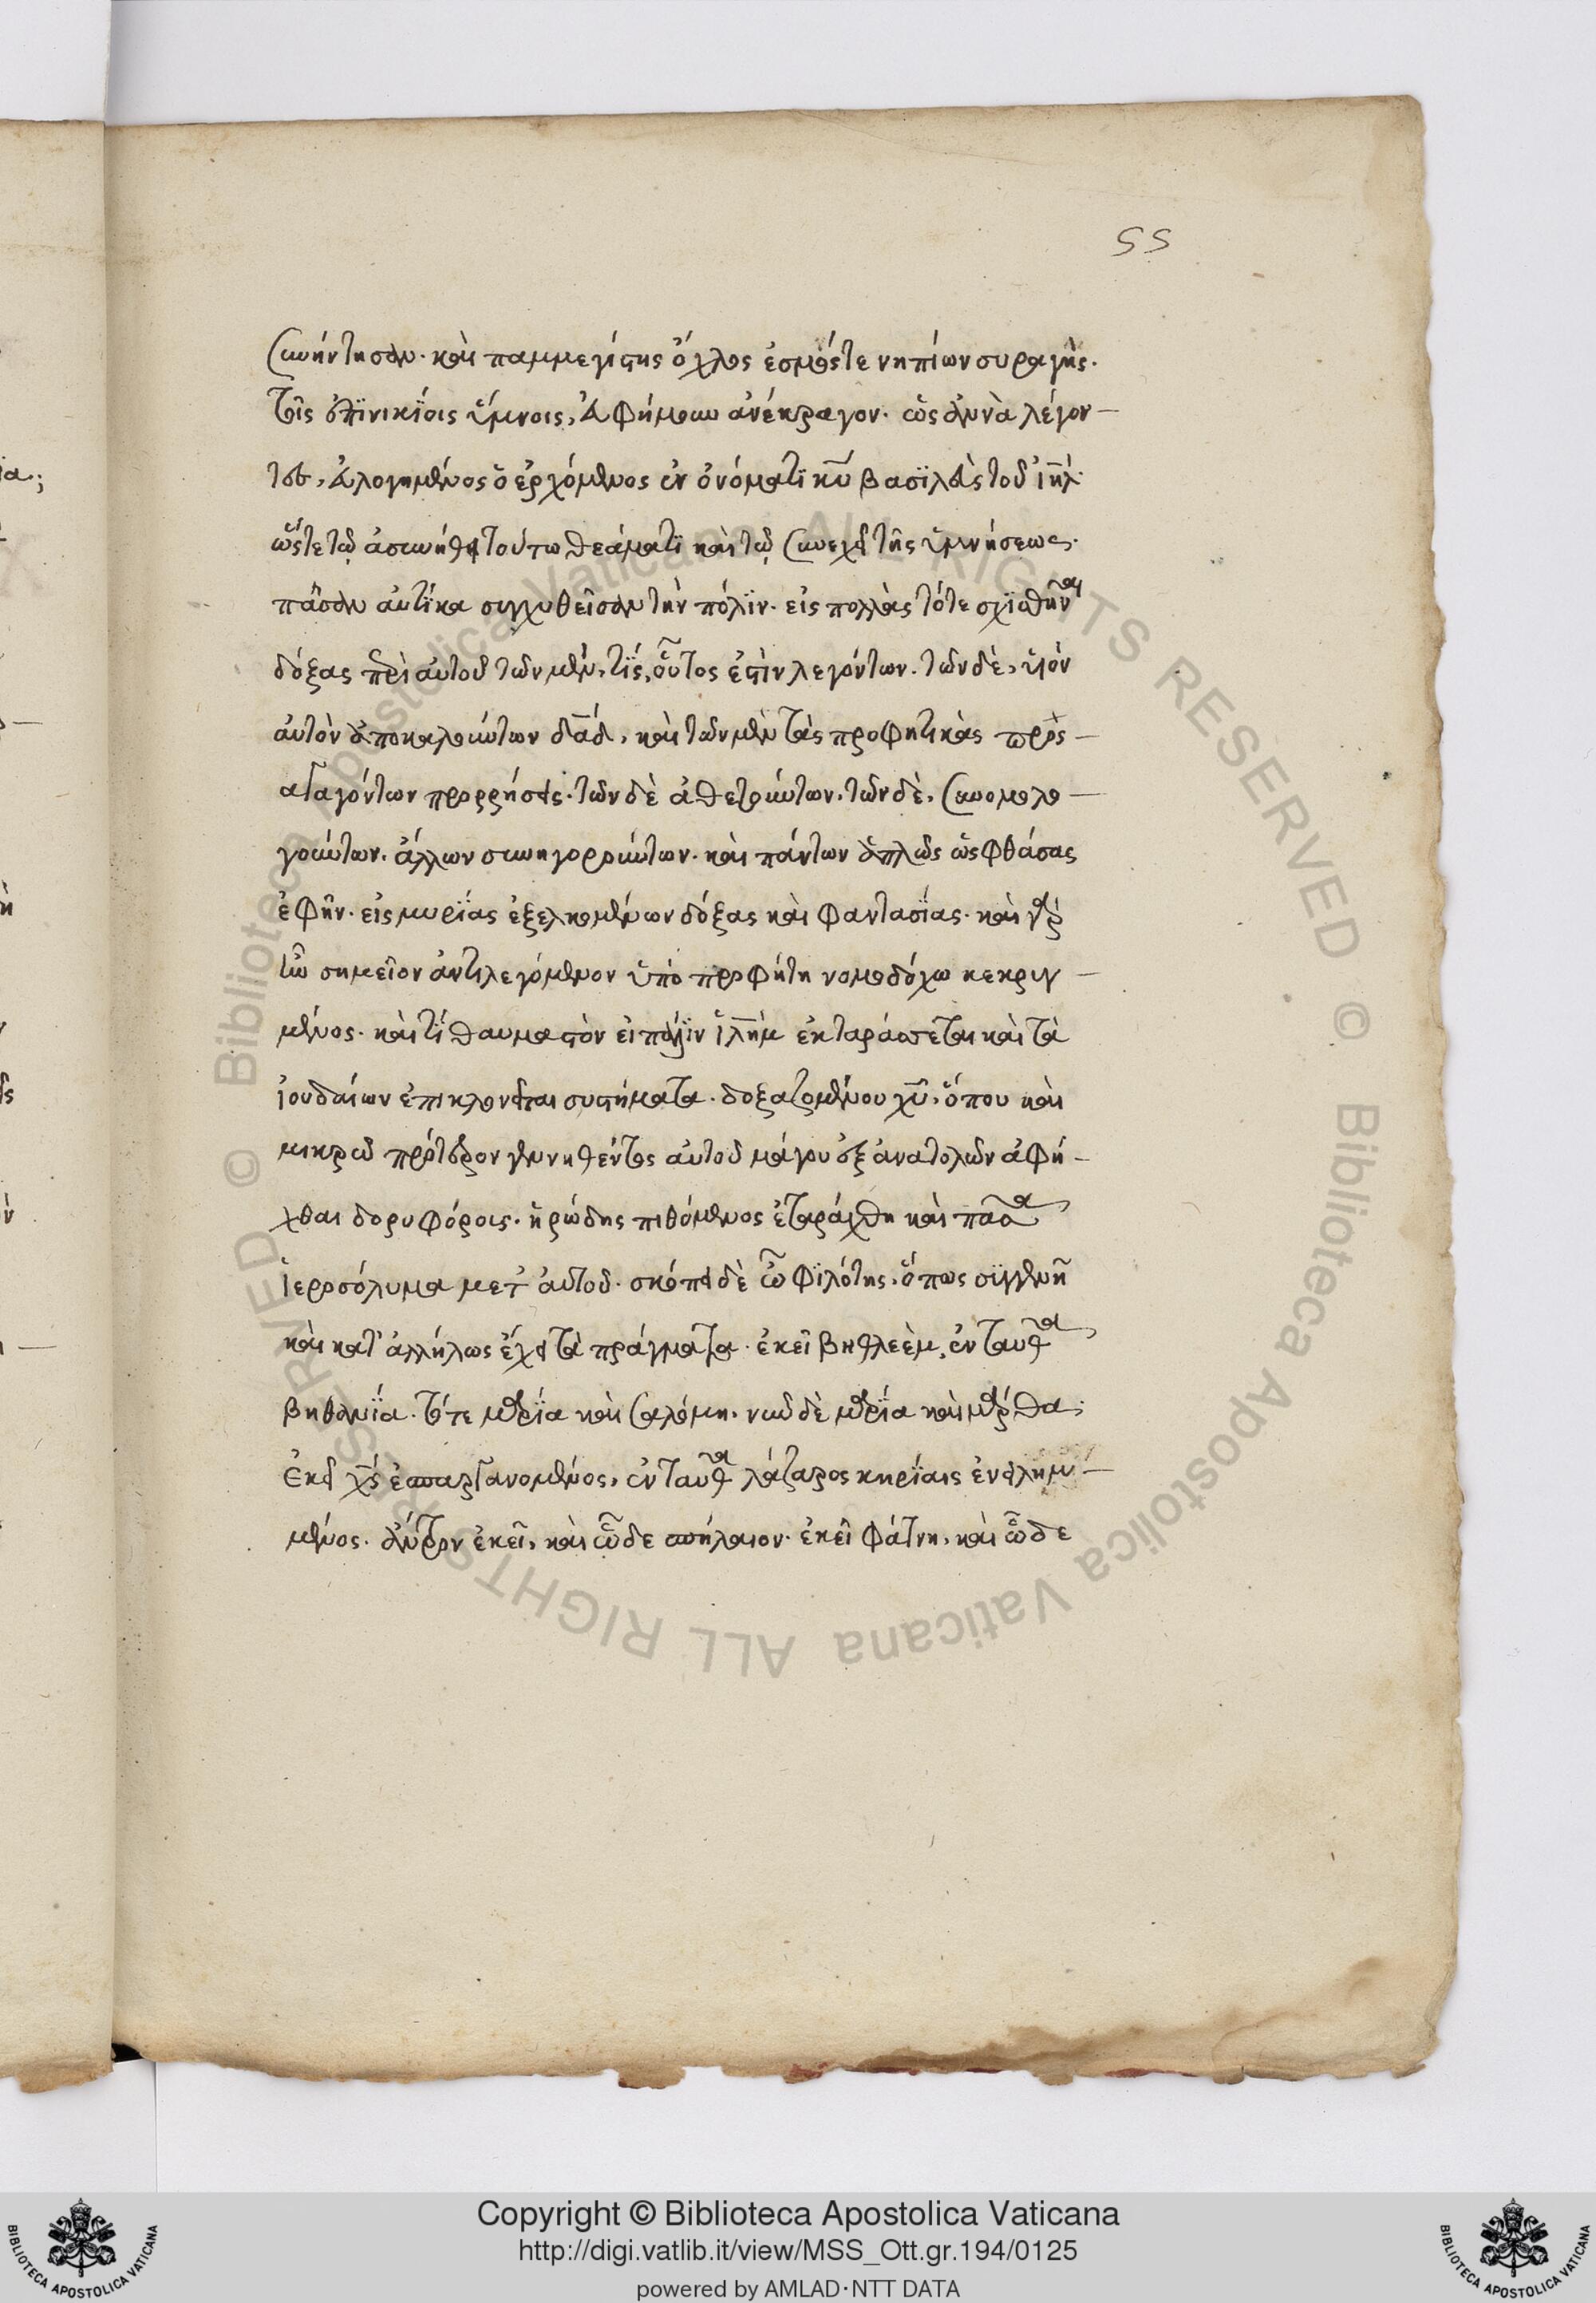 55
συνήντησαν. καὶ παμμεγέστης ὄχλος ἑσμός τε νηπίων συραγής.
τοῖς ἐπϊνικΐοις ὕμνοις, εὐφήμουν ἀνέκραγον. ὡσαννὰ λέγον-
τες, εὐλογημένος ὁ ἐρχόμενος ἐν ὀνόματϊ κυ βασϊλεὺς τοῦ ιηλ.
ὥστε τῷ ἀσυνήθει τούτω θεάματϊ καὶ τῷ συνεχεῖ τῆς ὑμνήσεως.
πᾶσαν αὐτίκα συγχυθεῖσαν τὴν πόλϊν. εἰς πολλὰς τότε σχϊσθῆναι
δόξας περὶ αὐτοῦ τῶν μὲν, τΐς, οὗτος ἐστὶν λεγόντων. τῶν δὲ, υἱὸν
αὐτὸν ἀποκαλούντων δαδ, καὶ τῶν μὲν τὰς προφητικὰς προς-
αγαγόντων προρρήσεις. τῶν δὲ ἀθετούντων. τῶν δὲ, συνομολο-
γούντων. ἄλλων συνηγορούντων. καὶ πάντων ἁπλῶς ὡς φθάσας
ἔφην. εἰς μυρΐας ἐξελκομένων δόξας καὶ φαντασΐας. καὶ γὰρ
ἦν σημεῖον ἀντιλεγόμενον ὑπὸ προφήτη νομοδόχω κεκριγ-
μένος. καὶ τΐ θαυμαστὸν εἰ πάλϊν ϊλημ ἐκταράσσεται καὶ τὰ
ἰουδαίων ἐπικλονεῖται συστήματα. δοξαζομένου χυ, ὅπου καὶ
μικρῶ πρότερον γεννηθέντος αὐτοῦ μάγου ἐξ ἀνατολῶν ἀφῆ-
χθαι δορυφόροις. ἡρώδης πιθόμενος ἐταράχθη καὶ πᾶσα
ἱεροσόλυμα μετ αὐτοῦ. σκόπει δὲ ὦ φϊλότης, ὅπως σϊγγενῆ
καὶ κατ ἀλλήλως ἔχει τὰ πράγματα. ἐκεῖ βηθλεὲμ, ἐνταῦθα
βηθανΐα. τότε μαρΐα καὶ σαλόμη. νῦν δὲ μαρΐα καὶ μάρθα;
ἐκεῖ χς ἐσπαργανομένος, ἐνταῦθα λάζαρος κηρΐαις ἐνειλημ-
μένος. ἄντρον ἐκεῖ, καὶ ὧδε σπήλαιον. ἐκεῖ φάτνη, καὶ ὧδε
Copyright © Biblioteca Apostolica Vaticana
http://digi.vatlib.it/view/MSS_Ott.gr.194/0125
powered by AMLAD·NTT DATA